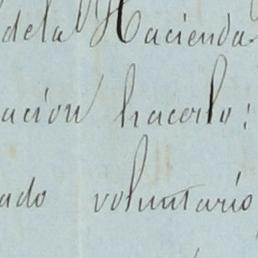 dela Hacienda
ación hacerlo:
ado voluntario